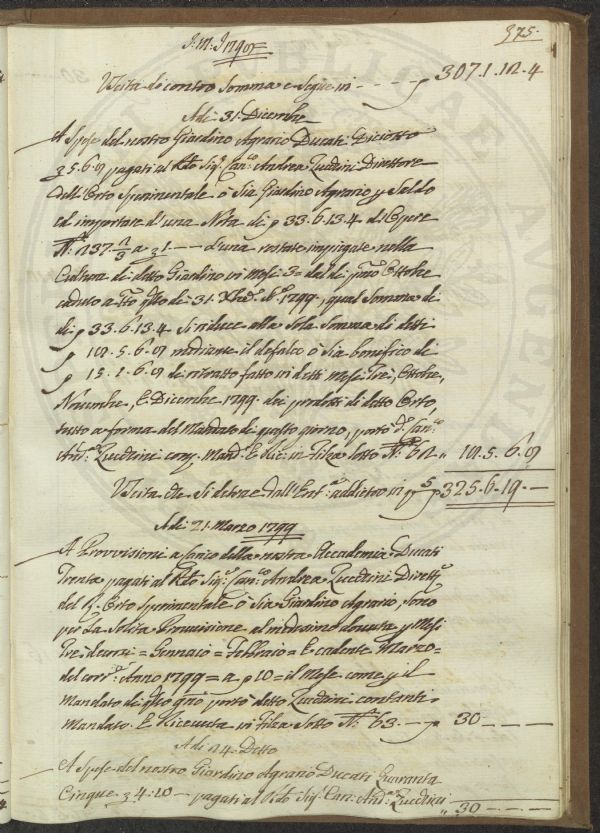 375.
J: M: J 1799
Uscita di contro somma e segue in - - - p 307.1.12.4
Adi 31. Dicembre
A Spese del nostro Giardino Agrario Ducati Diciotto
5.6.9 pagati al Sig.r Can.co Andrea Zucchini Direttore
dell'Orto Sperimentale ò Sia Giardino Agrario p Saldo
ed importare d'una Nota di p 33.6.13.4 di Opere
N.° 137. - - - d'una restate impiegate nella
Cultura di detto Giardino in Mesi 3 dal dì p.mo Ottobre
caduto a tto di 31 Xbre 1799, qual Somma di
di p 33.6.13.4 si riduce alla sola Somma di detti
p 18.5.6.9 mediante il defalco ò sia bonifico di
p 15.1.6.9 di ritratto fatto in detti Mesi Tre, Ottobre,
Novembre, E Dicembre 1799 dei prodotti di detto Orto,
tutto a forma del Mandato di questo giorno, portò d.° Can.co
And.a Zucchini con Mand.° E Ric. in Filza Sotto N.° 62 " 18.5.6.9
Uscita che si detrae dall'Ent.a addietro in p 325.6.19.-
Adi 21. Marzo 1799
A Provvisioni a carico della nostra Accademia Ducati
Trenta pagati al Sig.r Can.co Andrea Zucchini Dirett.e
del Orto Sperimentale ò Sia Giardino Agrario, sono
per La Solita Provvisione al medesimo dovuta p Mesi
Tre decorsi = Gennaio = Febbraio = E cadente Marzo =
del corr.e Anno 1799 = a p 10 = il Mese come p il
Mandato di q.sto g.no portò detto Zucchini contanti
Mandato E Ricevuta in Filza Sotto N.° 63 - - p 30 - - - -
Adi 24. Detto
A Spese del nostro Giardino Agrario Ducati Quaranta
Cinque 4:10 - pagati al Sig.r Can: And.a Zucchini
" 30 - - - -